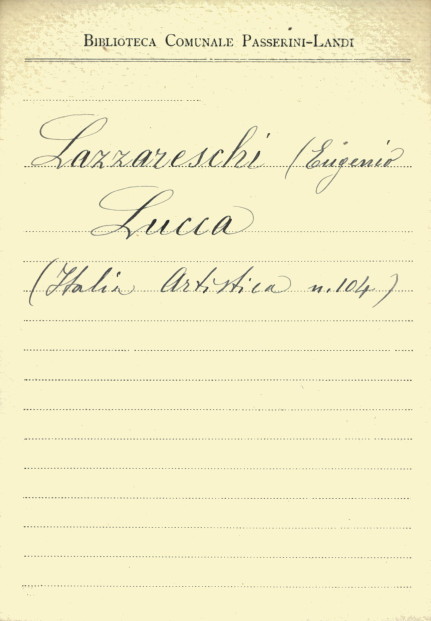 Biblioteca Comunale Passerini-Landi
Lazzareschi (Eugenio
Lucca
(Italia Artistica n. 104)